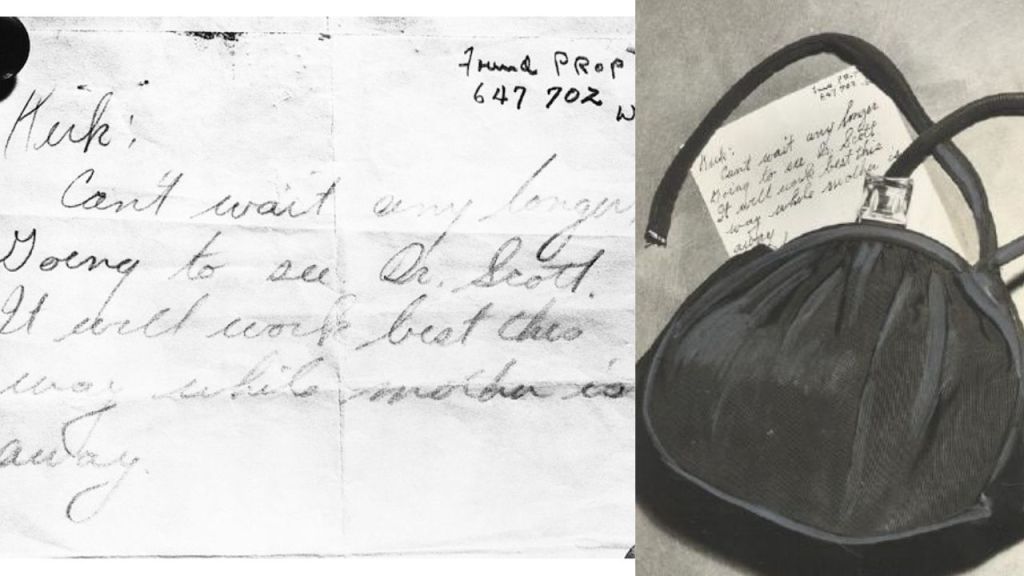 Found PROP
647 702
Kirk:
Can't wait any longer
Going to see Dr. Scott.
It will work best this
way while mother is
away.
Found
647 702
Kirk:
Can't wait any longer
Going to see Dr. Scott
It will work best this
way while mother is
away,